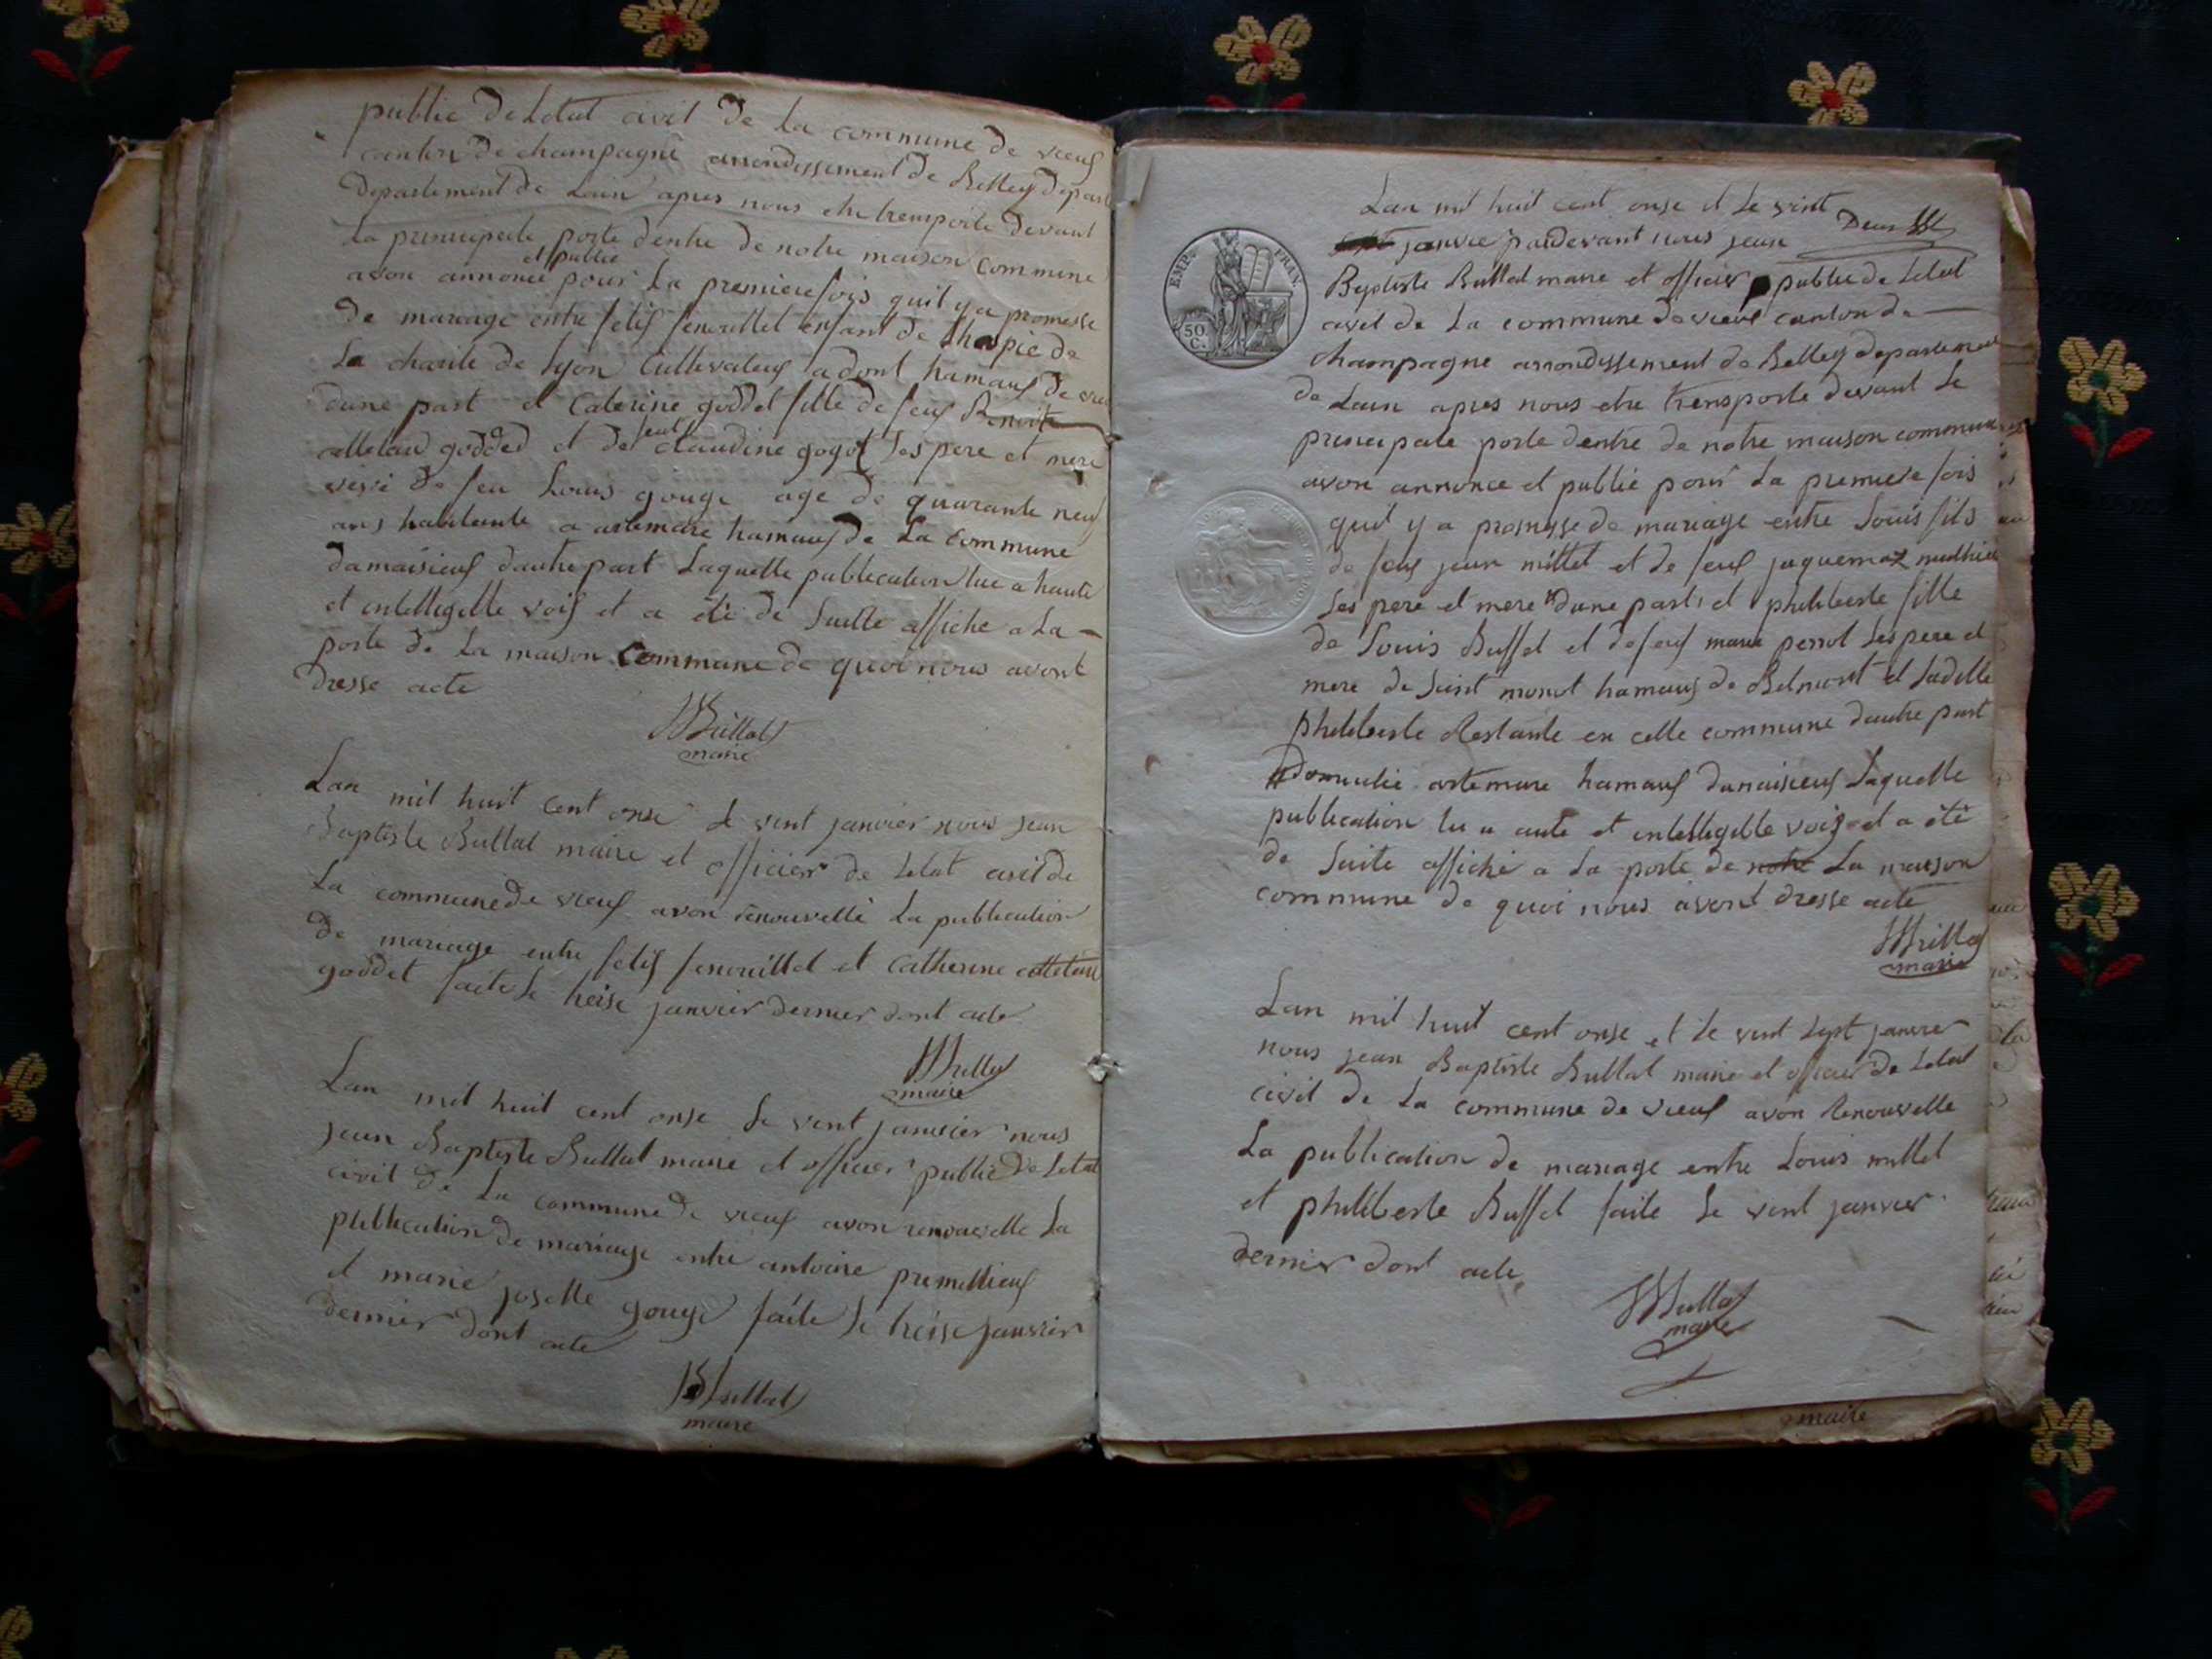 public de Letat civil de La commune de vieuf
canton de champagne arrondissement de Belley depart
departement de Lain apres nous etre transporte devant
La principale porte dentre de notre maison commune
et publie
avon annonce pour La premiere fois quil y a promesse
de mariage entre felif fenouillet enfant de Lhospice de
La charite de Lyon Cultivateur a dont hamauf de vieu
dune part et Caterine goddet fille de feuf Benoite
colletaud godded et de feue claudine gogot Ses pere et mere
veve de feu Louis gouge age de quarante neuf
ans habitante a artemare hamauf de La Commune
damaisieuf dautre part Laquelle publication lue a haute
et intelligelle voif et a été de Suitte affiche a La
porte de La maison Commune de quoi nous avont
dresse acte
JBullat
maire
Lan mil huit cent onse Le vint janvier nous jean
Baptiste Bullat maire et officier de Letat civil de
La commune de vieuf avon renouvellé La publication
de mariage entre felif fenouillet et Catherine colletaud
goddet faite Le treise janvier dernier dont acte
JBullat
maire
Lan mil huit cent onse Le vint janvier nous
jean Baptiste Bullat maire et officier public de Letat
civil de La commune de vieuf avon renouvelle La
publication de mariage entre antoine premillieuf
et marie josette gouge faite Le treise janvier
dernier dont acte
JBullat
maire
Lan mil huit cent onse et Le vint
janvie pardevant nous jean
Baptiste Bullat maire et officier public de Letat
civil de La commune de vieuf canton de
champagne arrondissement de Belley departement
de Lain apres nous etre transporte devant Le
principale porte dentre de notre maison commune
avon annonce et publie pour La premiere fois
quil y a promesse de mariage entre Louis fils
de feuf jean millet et de feuf jaquemaz
Ses pere et mere dune part et philiberte fille
de Louis Buffet et de feuf marie perrot Ses pere et
mere de Saint hamauf de Belmont et Laditte
philiberte Restante en cette commune dautre part
domicilié artemare hamauf damaisieuf Laquelle
publication lu a aute et intelligelle voif et a été
de Suite affiché a La porte de notre La maison
commune de quoi nous avont dresse acte
JBullat
maire
Lan mil huit cent onse et Le vint Sept janvier
nous jean Baptiste Bullat maire et officier de Letat
civil de La commune de vieuf avon Renouvelle
La publication de mariage entre Louis millet
et philiberte Buffet faite Le vint janvier
dernier dont acte
JBullat
maire
EMP. FRAN.
50
C.
maire